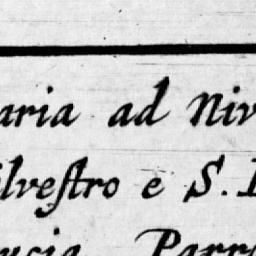 aria ad Niv
ilveſtro e S.
ucia Parr